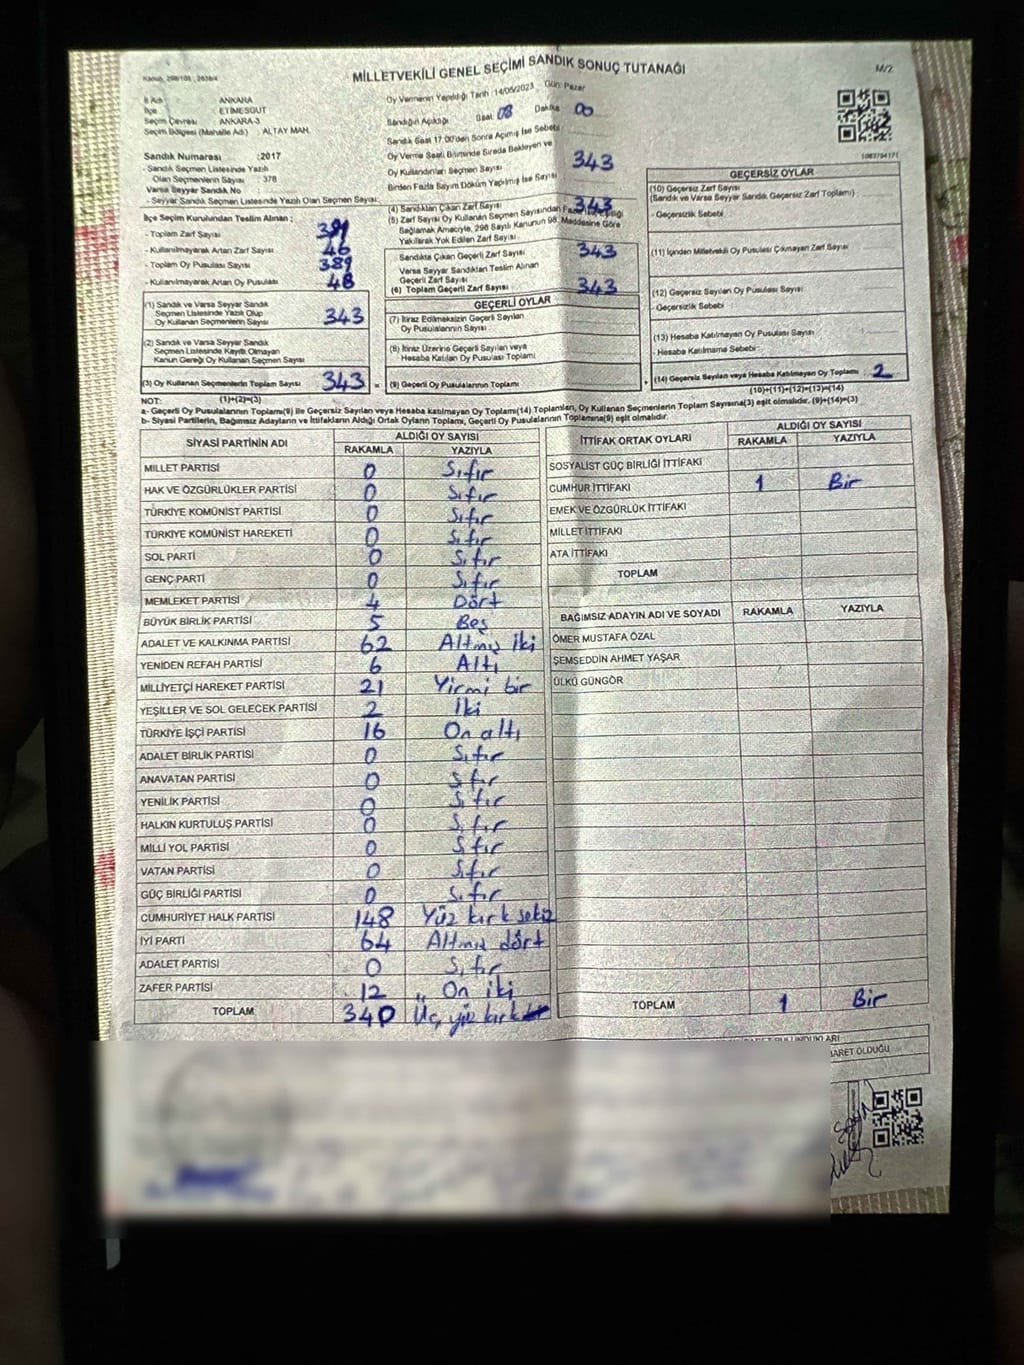 Kanun: 298/105 ; 2839/4
MİLLETVEKİLİ GENEL SEÇİMİ SANDIK SONUÇ TUTANAĞI
M/2
İl Adı : ANKARA
İlçe : ETİMESGUT
Seçim Çevresi : ANKARA-3
Seçim Bölgesi (Mahalle Adı) : ALTAY MAH.
Sandık Numarası :2017
- Sandık Seçmen Listesinde Yazılı
Olan Seçmenlerin Sayısı : 378
Varsa Seyyar Sandık No :
- Seyyar Sandık Seçmen Listesinde Yazılı Olan Seçmen Sayısı:
Oy Vermenin Yapıldığı Tarih :14/05/2023 Gün: Pazar
Sandığın Açıldığı Saat 08 Dakika 00
Sandık Saat 17.00'den Sonra Açılmış İse Sebebi
Oy Verme Saati Bitiminde Sırada Bekleyen ve
Oy Kullandırılan Seçmen Sayısı 343
Birden Fazla Sayım Döküm Yapılmış İse Sayısı
1063704171
İlçe Seçim Kurulundan Teslim Alınan ;
- Toplam Zarf Sayısı 391
- Kullanılmayarak Artan Zarf Sayısı 46
- Toplam Oy Pusulası Sayısı 389
- Kullanılmayarak Artan Oy Pusulası 48
(1) Sandık ve Varsa Seyyar Sandık
Seçmen Listesinde Yazılı Olup
Oy Kullanan Seçmenlerin Sayısı 343
(2) Sandık ve Varsa Seyyar Sandık
Seçmen Listesinde Kayıtlı Olmayan
Kanun Gereği Oy Kullanan Seçmen Sayısı
(3) Oy Kullanan Seçmenlerin Toplam Sayısı 343 =
(1)+(2)=(3)
(4) Sandıktan Çıkan Zarf Sayısı 343
(5) Zarf Sayısı Oy Kullanan Seçmen Sayısından Fazla İse Eşitliği
Bağlamak Amacıyle, 298 Sayılı Kanunun 98. Maddesine Göre
Yakılarak Yok Edilen Zarf Sayısı
Sandıkta Çıkan Geçerli Zarf Sayısı 343
Varsa Seyyar Sandıktan Teslim Alınan
Geçerli Zarf Sayısı
(6) Toplam Geçerli Zarf Sayısı 343
GEÇERLİ OYLAR
(7) İtiraz Edilmeksizin Geçerli Sayılan
Oy Pusulalarının Sayısı
(8) İtiraz Üzerine Geçerli Sayılan veya
Hesaba Katılan Oy Pusulası Toplamı
(9) Geçerli Oy Pusulalarının Toplamı +
GEÇERSİZ OYLAR
(10) Geçersiz Zarf Sayısı
(Sandık ve Varsa Seyyar Sandık Geçersiz Zarf Toplamı)
- Geçersizlik Sebebi
(11) İçinden Milletvekili Oy Pusulası Çıkmayan Zarf Sayısı
(12) Geçersiz Sayılan Oy Pusulası Sayısı
- Geçersizlik Sebebi
(13) Hesaba Katılmayan Oy Pusulası Sayısı
- Hesaba Katılmama Sebebi
(14) Geçersiz Sayılan veya Hesaba Katılmayan Oy Toplamı 2
(10)+(11)+(12)+(13)=(14)
NOT:
a- Geçerli Oy Pusulalarının Toplamı(9) ile Geçersiz Sayılan veya Hesaba katılmayan Oy Toplamı(14) Toplamları, Oy Kullanan Seçmenlerin Toplam Sayısına(3) eşit olmalıdır. (9)+(14)=(3)
b- Siyasi Partilerin, Bağımsız Adayların ve İttifakların Aldığı Ortak Oyların Toplamı, Geçerli Oy Pusulalarının Toplamına(9) eşit olmalıdır.
SİYASİ PARTİNİN ADI ALDIĞI OY SAYISI
RAKAMLA YAZIYLA
MİLLET PARTİSİ 0 Sıfır
HAK VE ÖZGÜRLÜKLER PARTİSİ 0 Sıfır
TÜRKİYE KOMÜNİST PARTİSİ 0 Sıfır
TÜRKİYE KOMÜNİST HAREKETİ 0 Sıfır
SOL PARTİ 0 Sıfır
GENÇ PARTİ 0 Sıfır
MEMLEKET PARTİSİ 4 Dört
BÜYÜK BİRLİK PARTİSİ 5 Beş
ADALET VE KALKINMA PARTİSİ 62 Altmış iki
YENİDEN REFAH PARTİSİ 6 Altı
MİLLİYETÇİ HAREKET PARTİSİ 21 Yirmi bir
YEŞİLLER VE SOL GELECEK PARTİSİ 2 İki
TÜRKİYE İŞÇİ PARTİSİ 16 On altı
ADALET BİRLİK PARTİSİ 0 Sıfır
ANAVATAN PARTİSİ 0 Sıfır
YENİLİK PARTİSİ 0 Sıfır
HALKIN KURTULUŞ PARTİSİ 0 Sıfır
MİLLİ YOL PARTİSİ 0 Sıfır
VATAN PARTİSİ 0 Sıfır
GÜÇ BİRLİĞİ PARTİSİ 0 Sıfır
CUMHURİYET HALK PARTİSİ 148 Yüz kırk sekiz
İYİ PARTİ 64 Altmış dört
ADALET PARTİSİ 0 Sıfır
ZAFER PARTİSİ 12 On iki
TOPLAM 340 Üç yüz kırk
İTTİFAK ORTAK OYLARI ALDIĞI OY SAYISI
RAKAMLA YAZIYLA
SOSYALİST GÜÇ BİRLİĞİ İTTİFAKI
CUMHUR İTTİFAKI 1 Bir
EMEK VE ÖZGÜRLÜK İTTİFAKI
MİLLET İTTİFAKI
ATA İTTİFAKI
TOPLAM
BAĞIMSIZ ADAYIN ADI VE SOYADI RAKAMLA YAZIYLA
ÖMER MUSTAFA ÖZAL
ŞEMSEDDİN AHMET YAŞAR
ÜLKÜ GÜNGÖR
TOPLAM 1 Bir
İARET OLDUĞU